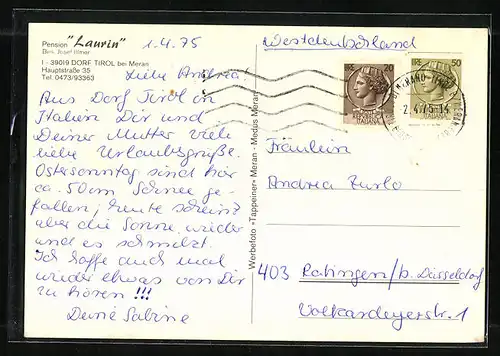 Pension "Laurin"
Bes. Josef Illmer
I - 39019 DORF TIROL bei Meran
Hauptstraße 35
Tel. 0473/93363
1.4.75
Liebe Andrea!
Aus Dorf Tirol in
Italien Dir und
Deiner Mutter viele
liebe Urlaubsgrüße.
Ostersonntag sind hier
ca. 50 cm Schnee ge-
fallen; heute scheint
aber die Sonne wieder
und es schmilzt.
Ich hoffe auch mal
wieder etwas von Dir
zu hören!!!
Deine Sabine
Werbefoto »Tappeiner« Meran - Medus Meran
Westdeutschland
20
50
ITALIANA
ITALIANA
2.4.75-14
Fräulein
Andrea Zurlo
403 Ratingen/b. Düsseldorf
Volkardeyerstr. 1